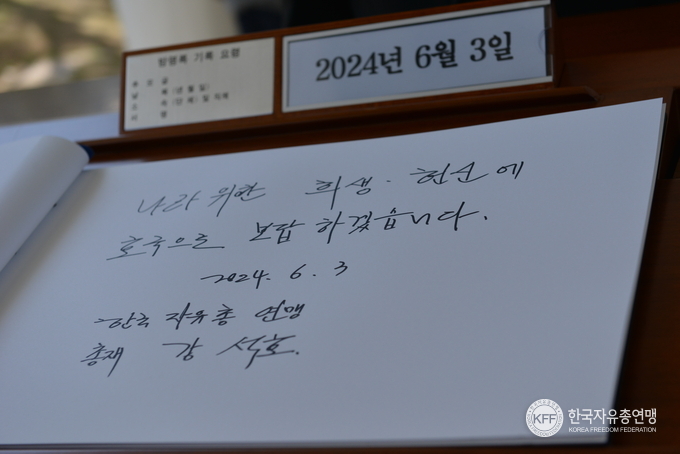 방명록 기록 요령
2024년 6월 3일
나라 위한 희생·헌신에
호국으로 보답 하겠습니다.
2024. 6. 3
한국 자유총 연맹
총재 강 석호.
KFF
한국자유총연맹
KOREA FREEDOM FEDERATION